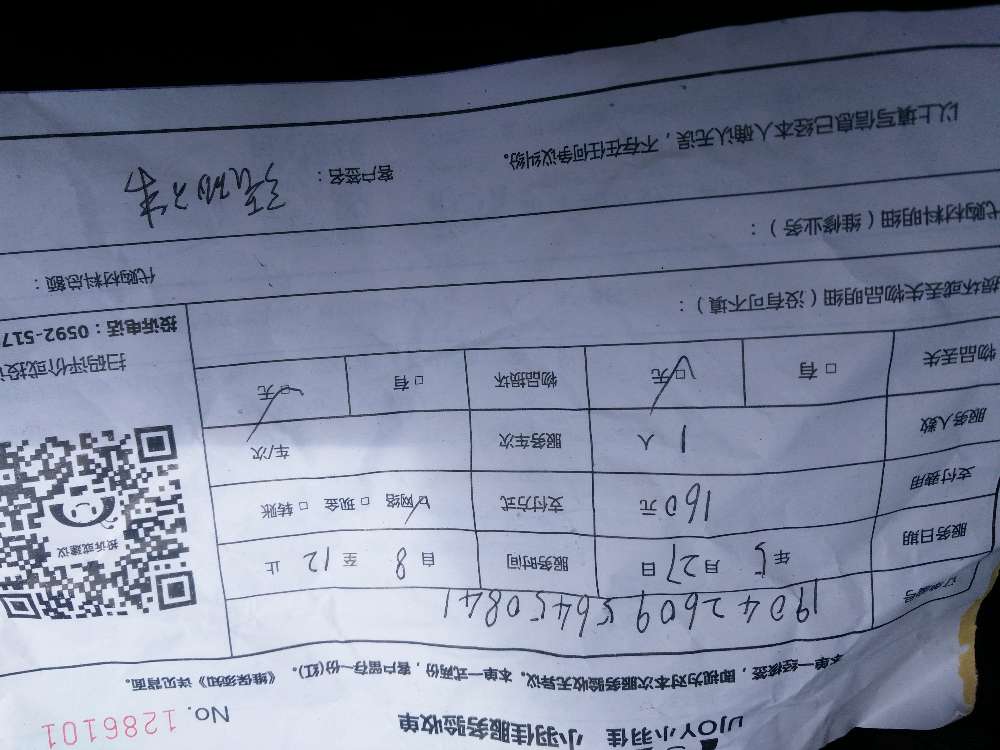 UJOY小羽佳 小羽佳服务验收单 No. 1286101
本单一经核签，即视为对本次服务验收无异议。本单一式两份，客户留存一份(红)。《维保须知》详见背面。
订单编号 1904260956450841
服务日期 年 5 月 27 日 服务时间 自 8 至 12 止
支付费用 160元 支付方式 □网络 □现金 □转账
服务人数 1 人 服务车次 车/次
物品丢失 □有 □无 物品损坏 □有 □无
投诉或建议
扫码评价或投
投诉电话：0592-517
损坏或丢失物品明细（没有可不填）：
代购材料明细（维修业务）： 代购材料总额：
以上填写信息已经本人确认无误，不存在任何争议纠纷。
客户签名：